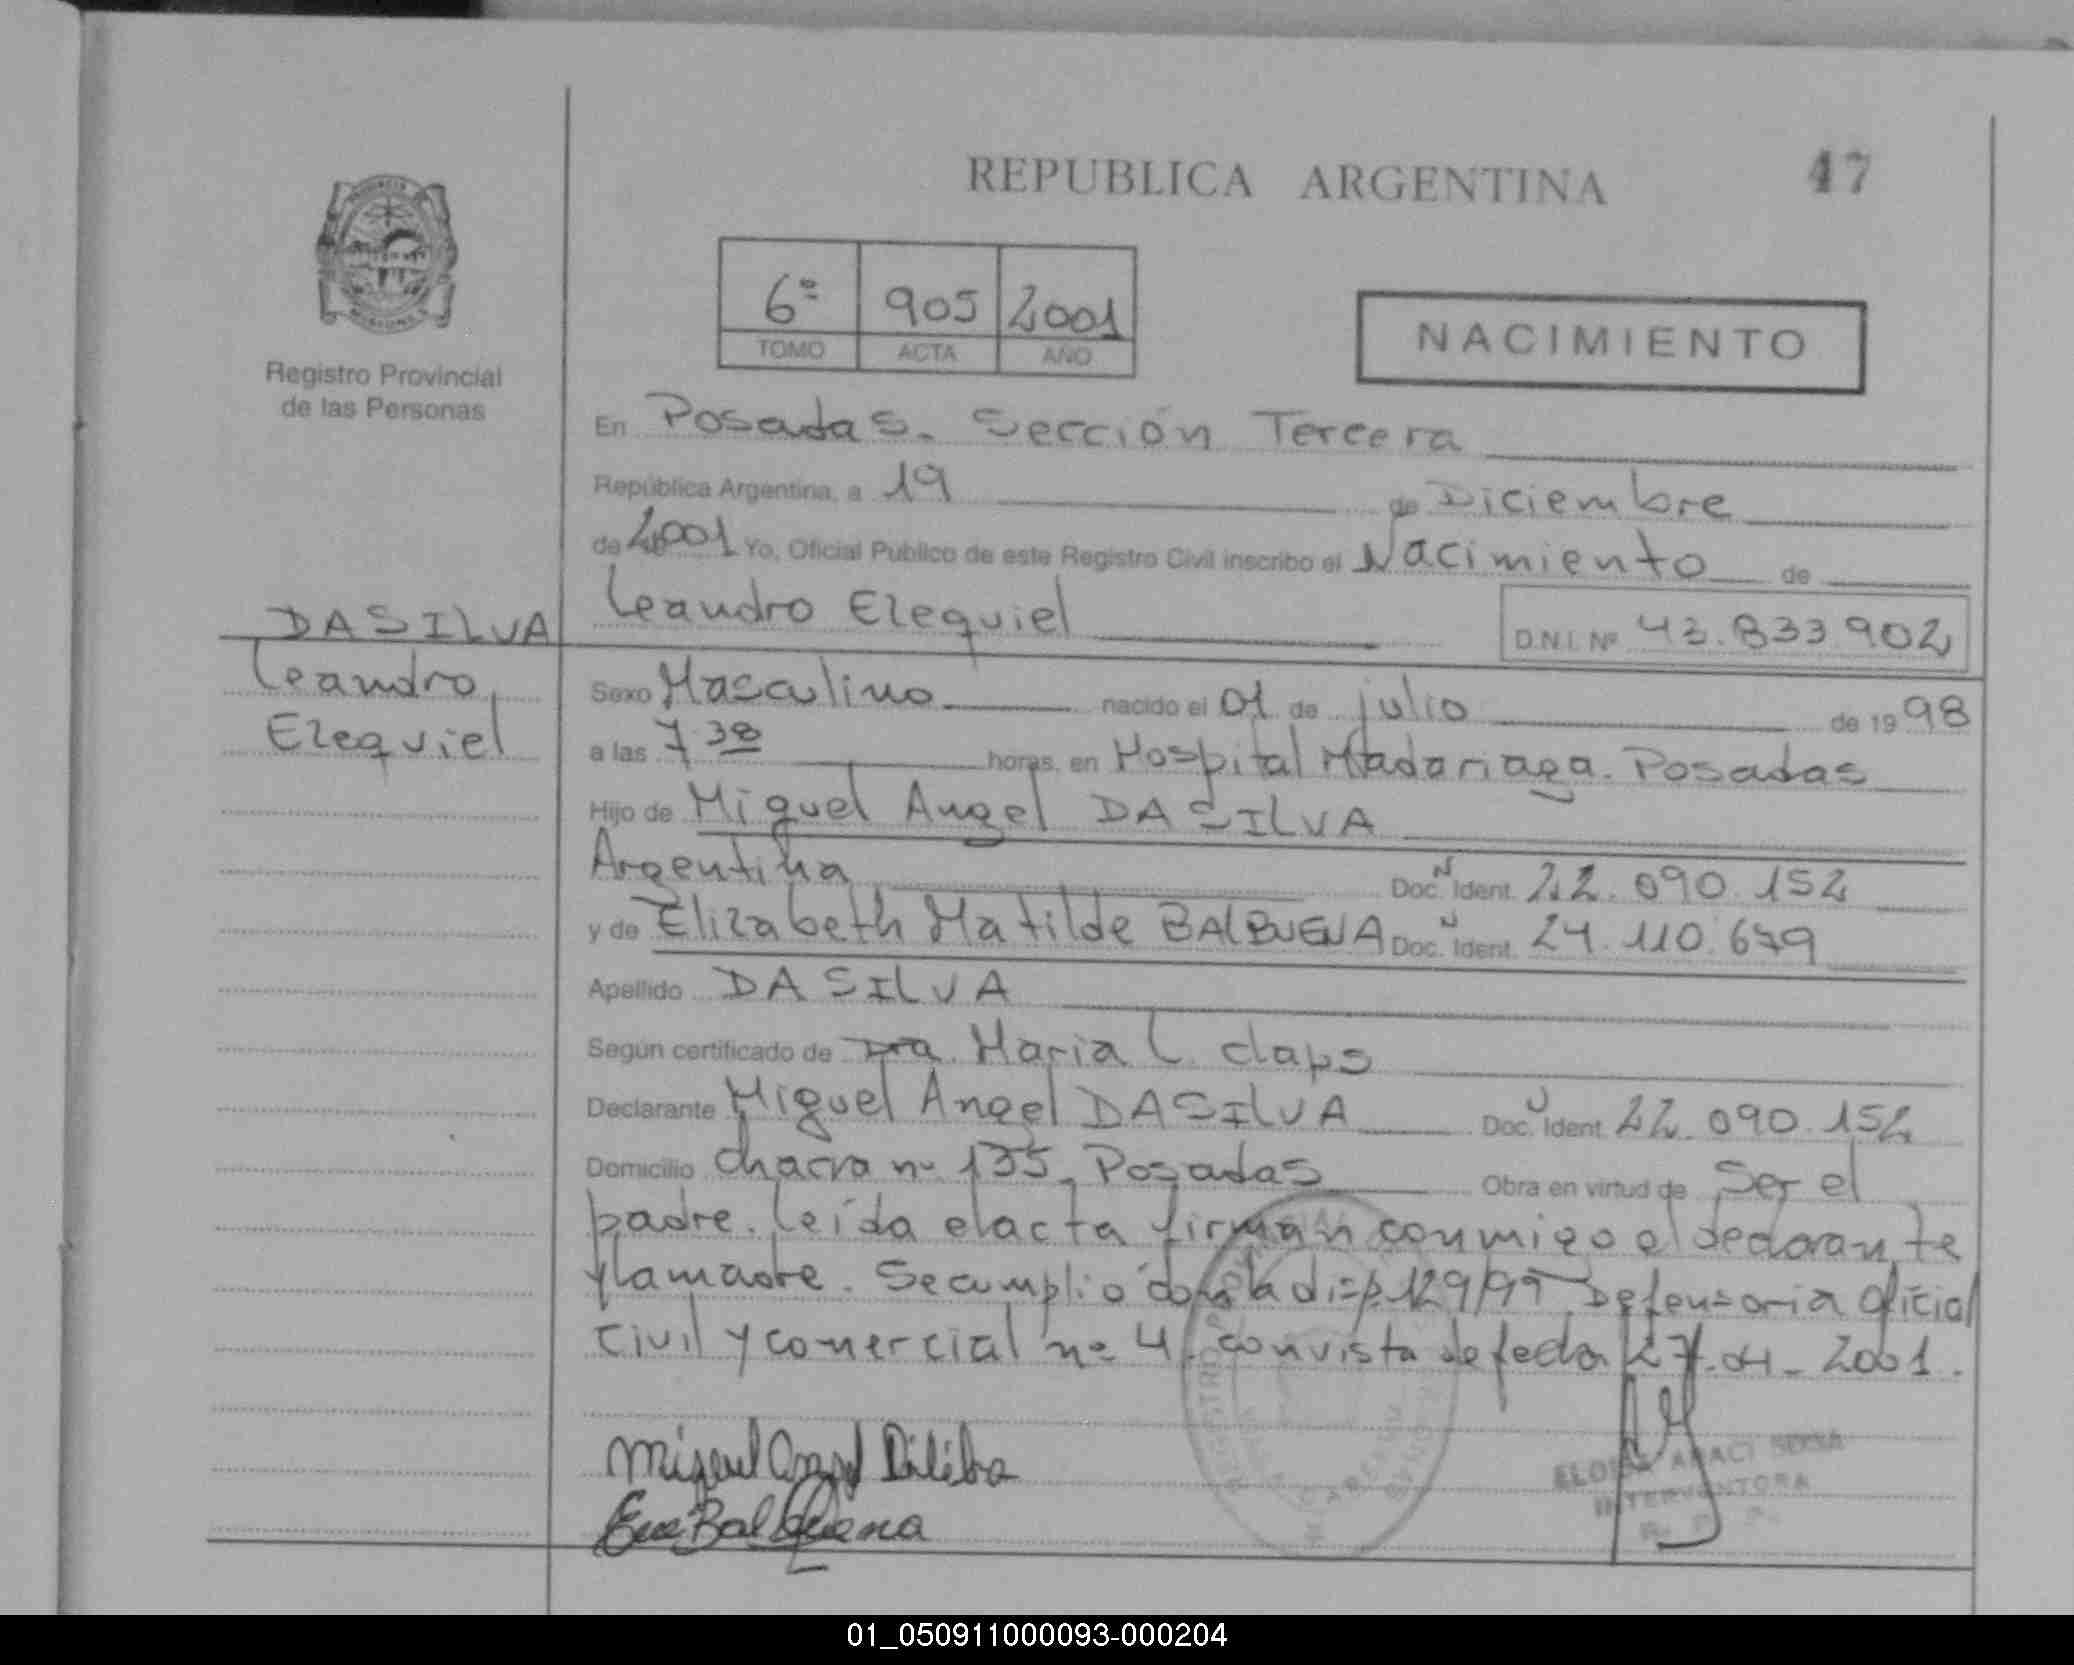 REPUBLICA ARGENTINA
47
Registro Provincial
de las Personas
6º 905 2001
TOMO ACTA AÑO
NACIMIENTO
En Posadas. Sección Tercera
República Argentina, a 19 de Diciembre
de 2001 Yo, Oficial Publico de este Registro Civil inscribo el Nacimiento de
Leandro Ezequiel D.N.I. Nº 43.833.902
DASILVA
Leandro
Ezequiel
Sexo Masculino nacido el 01 de julio de 19 98
a las 7.38 horas, en Hospital Madariaga. Posadas
Hijo de Miguel Angel DASILVA
Argentina Doc. Ident. 22.090.152
y de Elizabeth Matilde BALBUENA Doc. Ident. 24.110.679
Apellido DASILVA
Según certificado de Dra. Maria L. claps
Declarante Miguel Angel DASILVA Doc. Ident. 22.090.152
Domicilio chacra nº 135, Posadas Obra en virtud de Ser el
padre. Leída el acta firman conmigo el declarante
y la madre. Se cumplio con la disp. 129/99 Defensoria Oficial
Civil y comercial nº 4, con vista de fecha 27-04-2001.
Miguel Angel
Balbuena
INTERVENTORA
R. P. P.
01_050911000093-000204